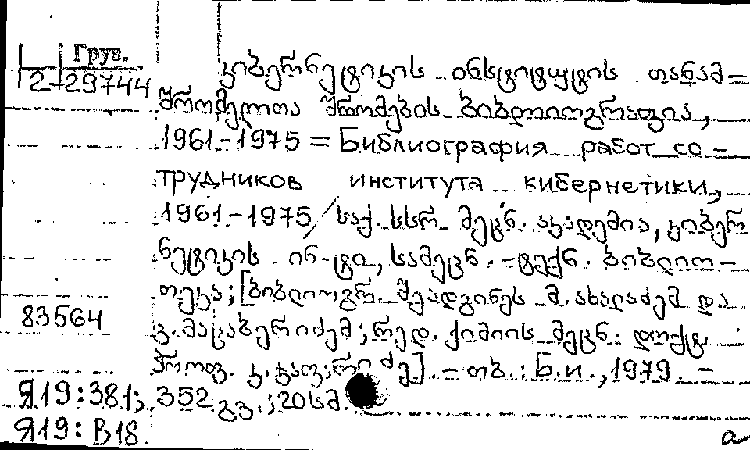 Груз.
2-29744
კიბერნეტიკის ინსტიტუტის თანამ=
შრომელთა შრომების ბიბლიოგრაფია,
1961-1975 = Библиография работ со-
трудников института кибернетики,
1961-1975 / საქ. სსრ მეცნ. აკადემია, კიბერ
ნეტიკის ინ-ტი, სამეცნ.-ტექნ. ბიბლიო-
თეკა; [ბიბლიოგრ. შეადგინეს მ. ახალაძემ და
83564
გ. მაჭაბერიძემ; რედ. ქიმიის მეცნ. დოქტ.
პროფ. კ. ] - თბ.: Б.и., 1979. -
Я19:381; 352 გვ.; 20სმ.
Я19: В18.
а